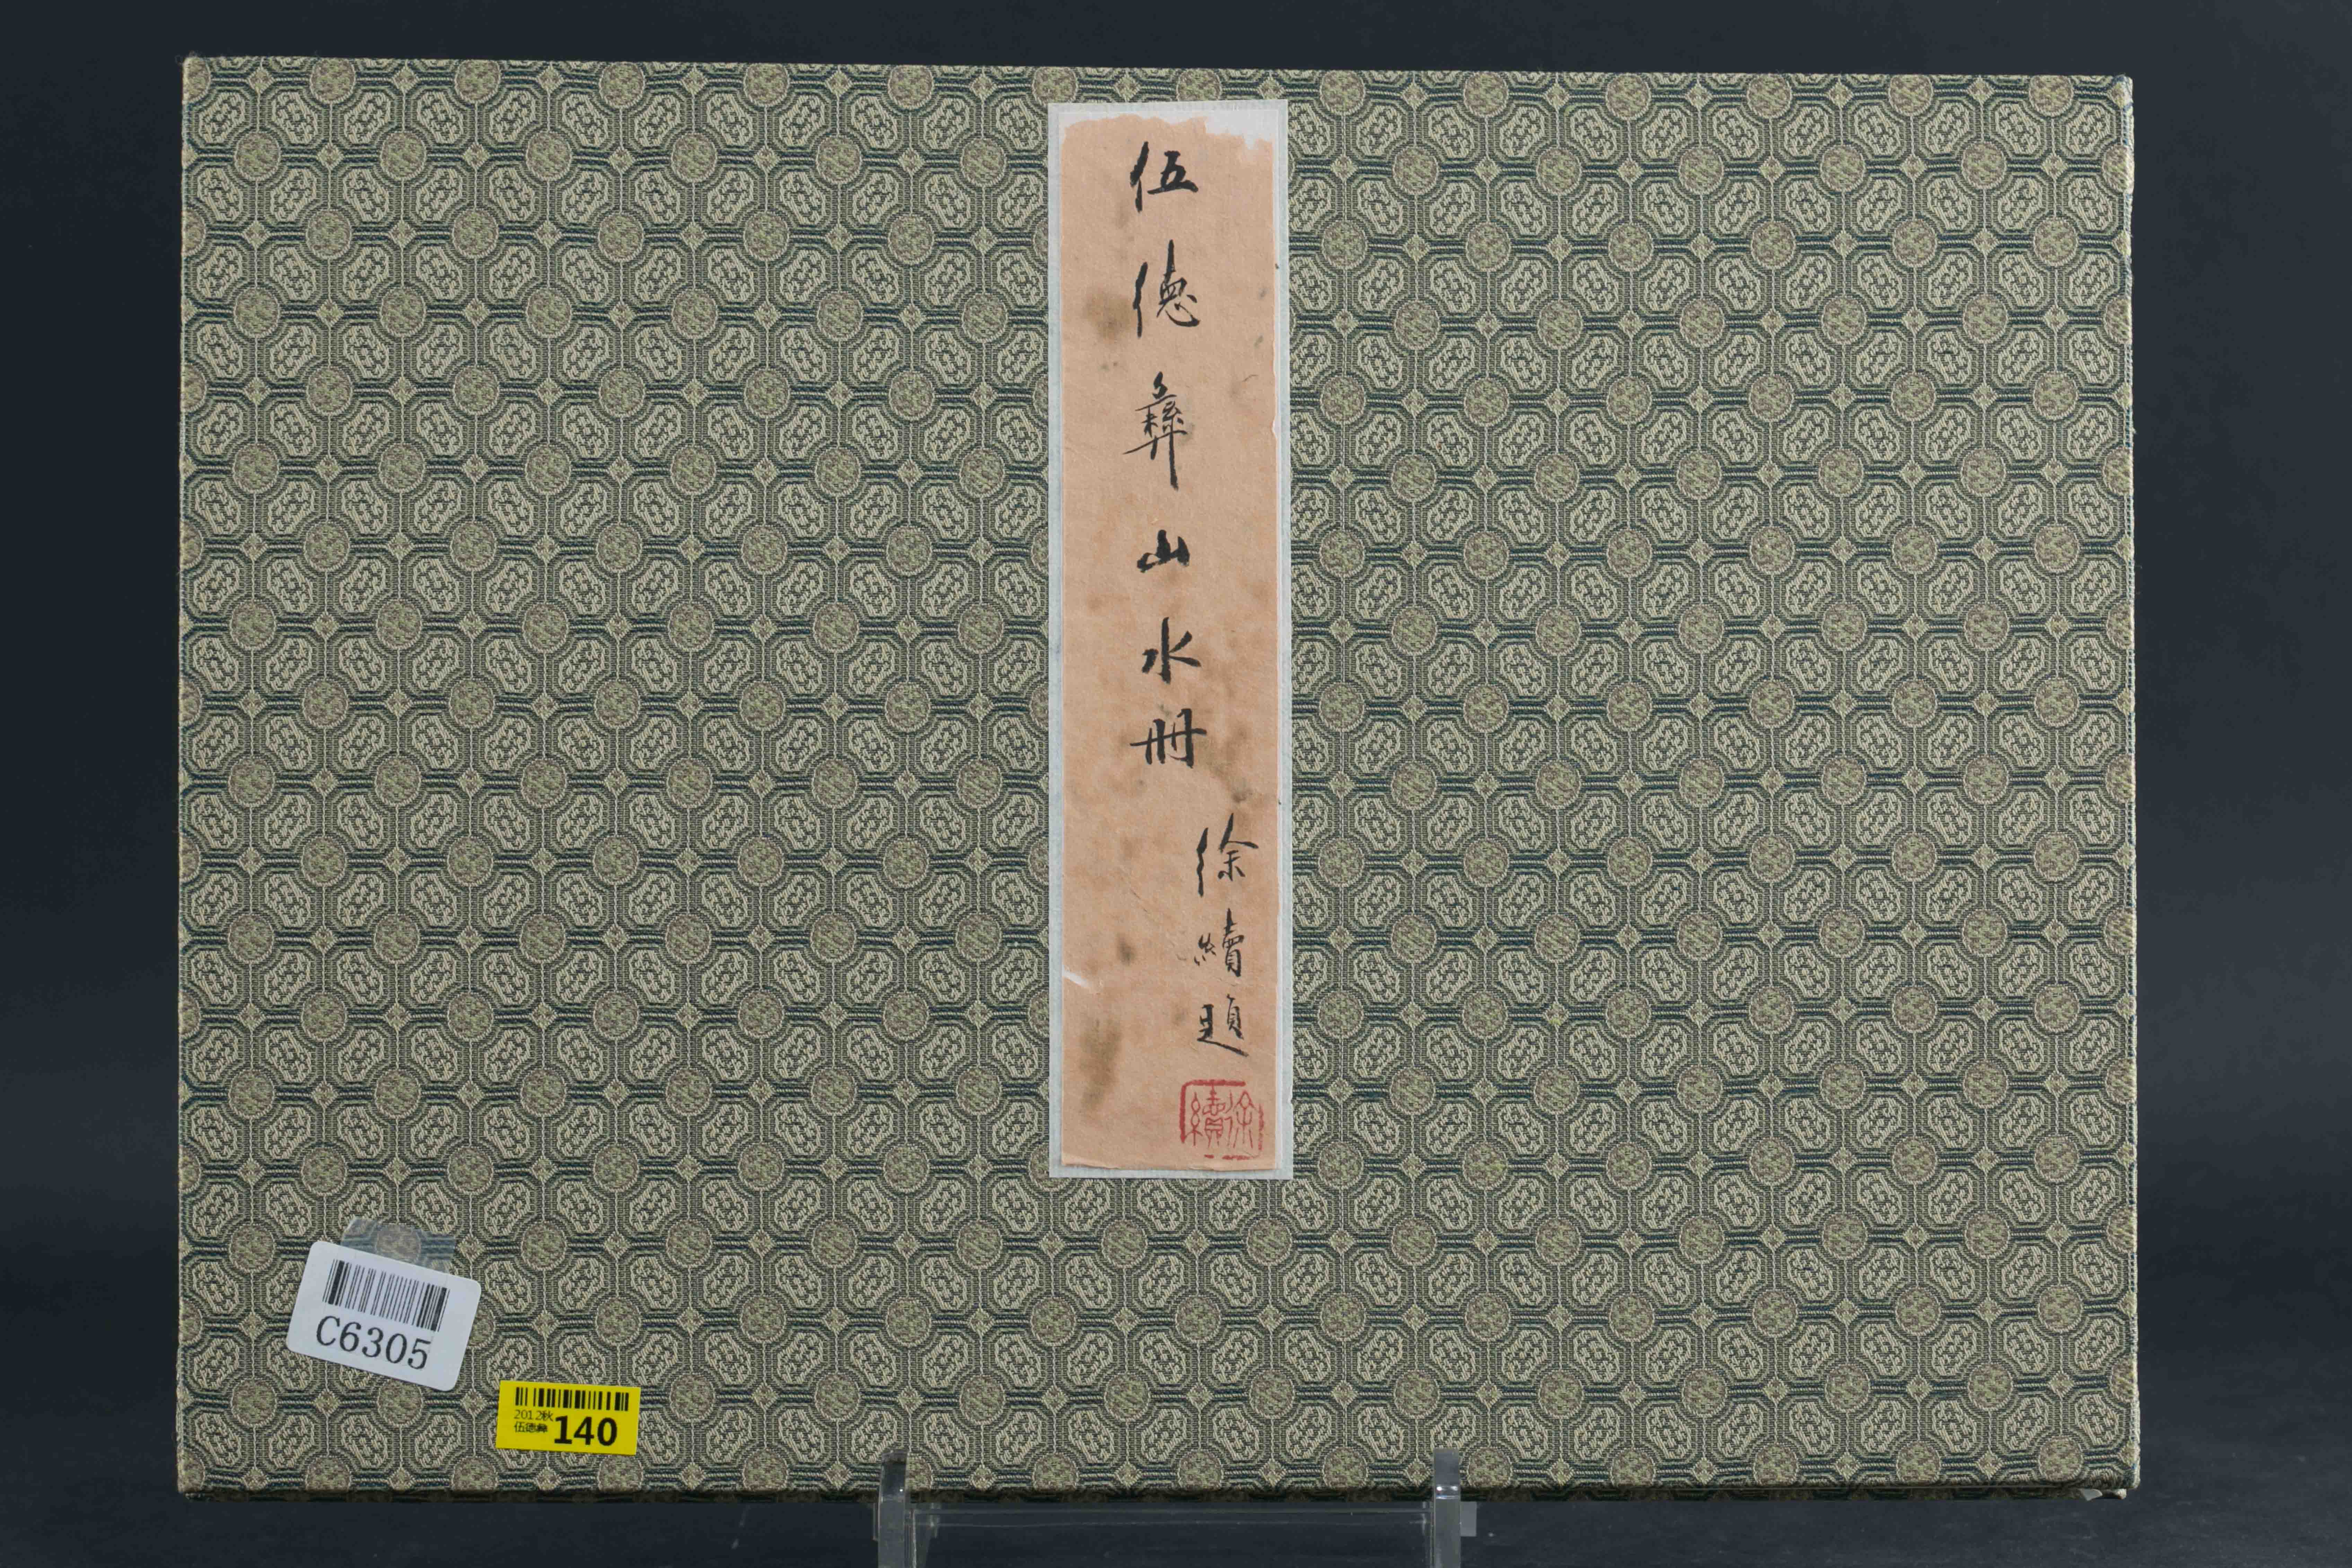 伍德彝山水册
徐續題
徐續
C6305
2012秋
伍德彝
140